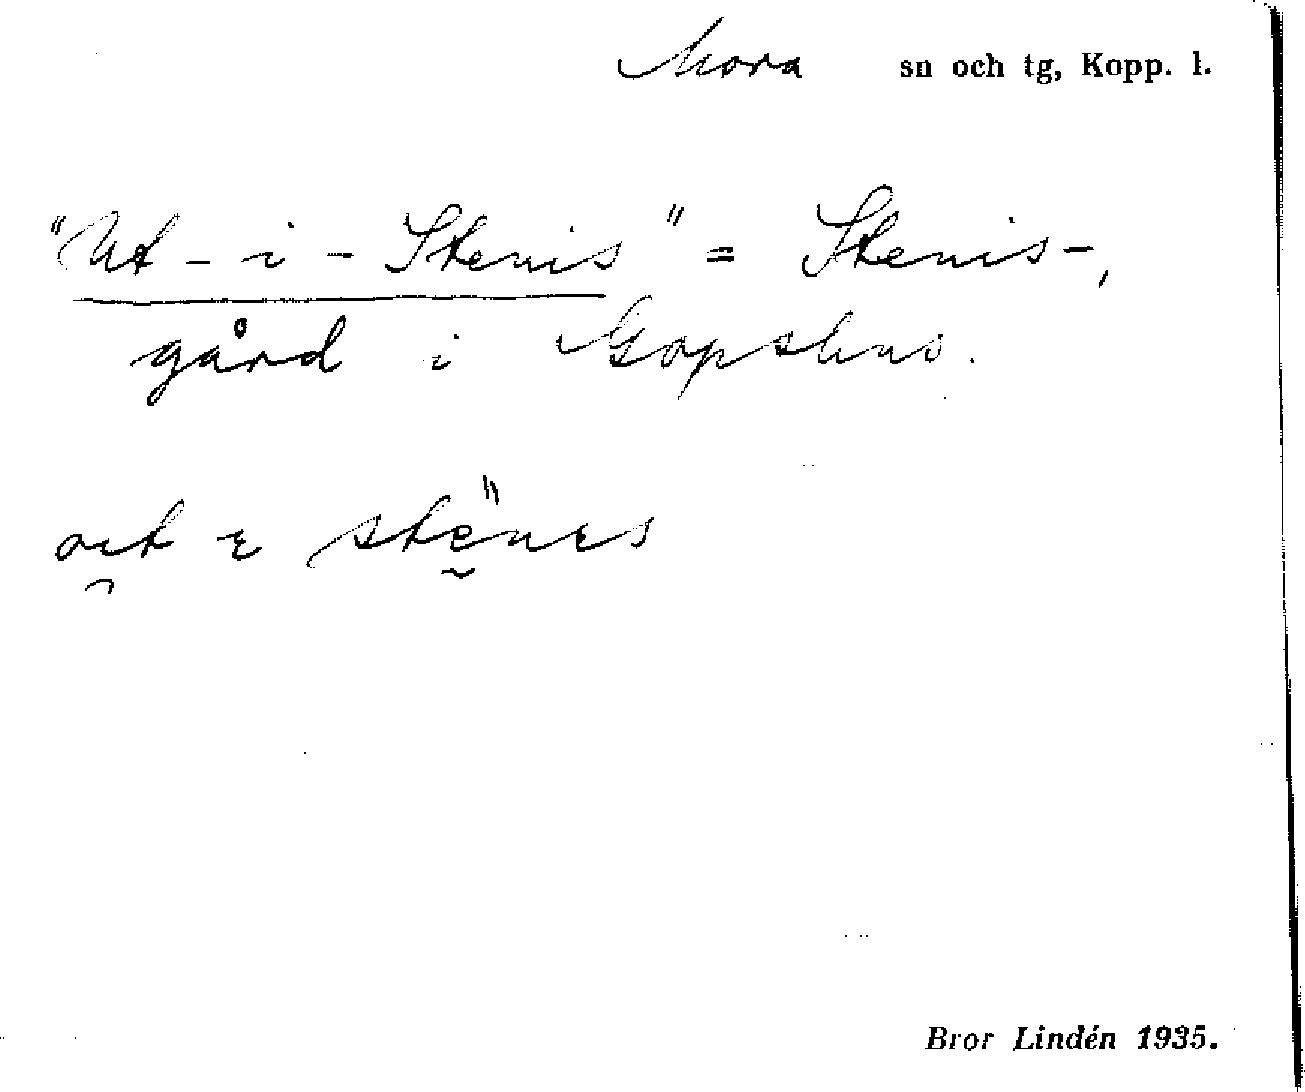 Mora sn och tg, Kopp. l.
"Ut - i - Stenis" = Stenis-,
gård i Gopshus.
Bror Lindén 1935.